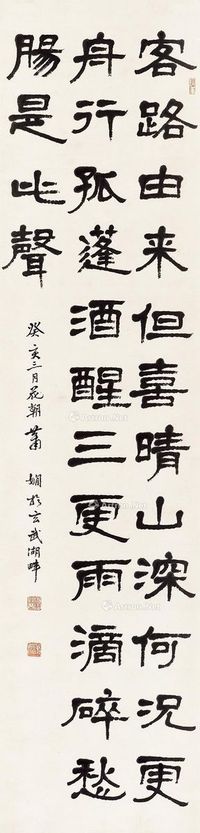 客路由来但喜晴山深何況更
舟行孤蓬酒醒三更雨滴碎愁
腸是此聲
癸亥三月花朝蕭嫻於玄武湖畔